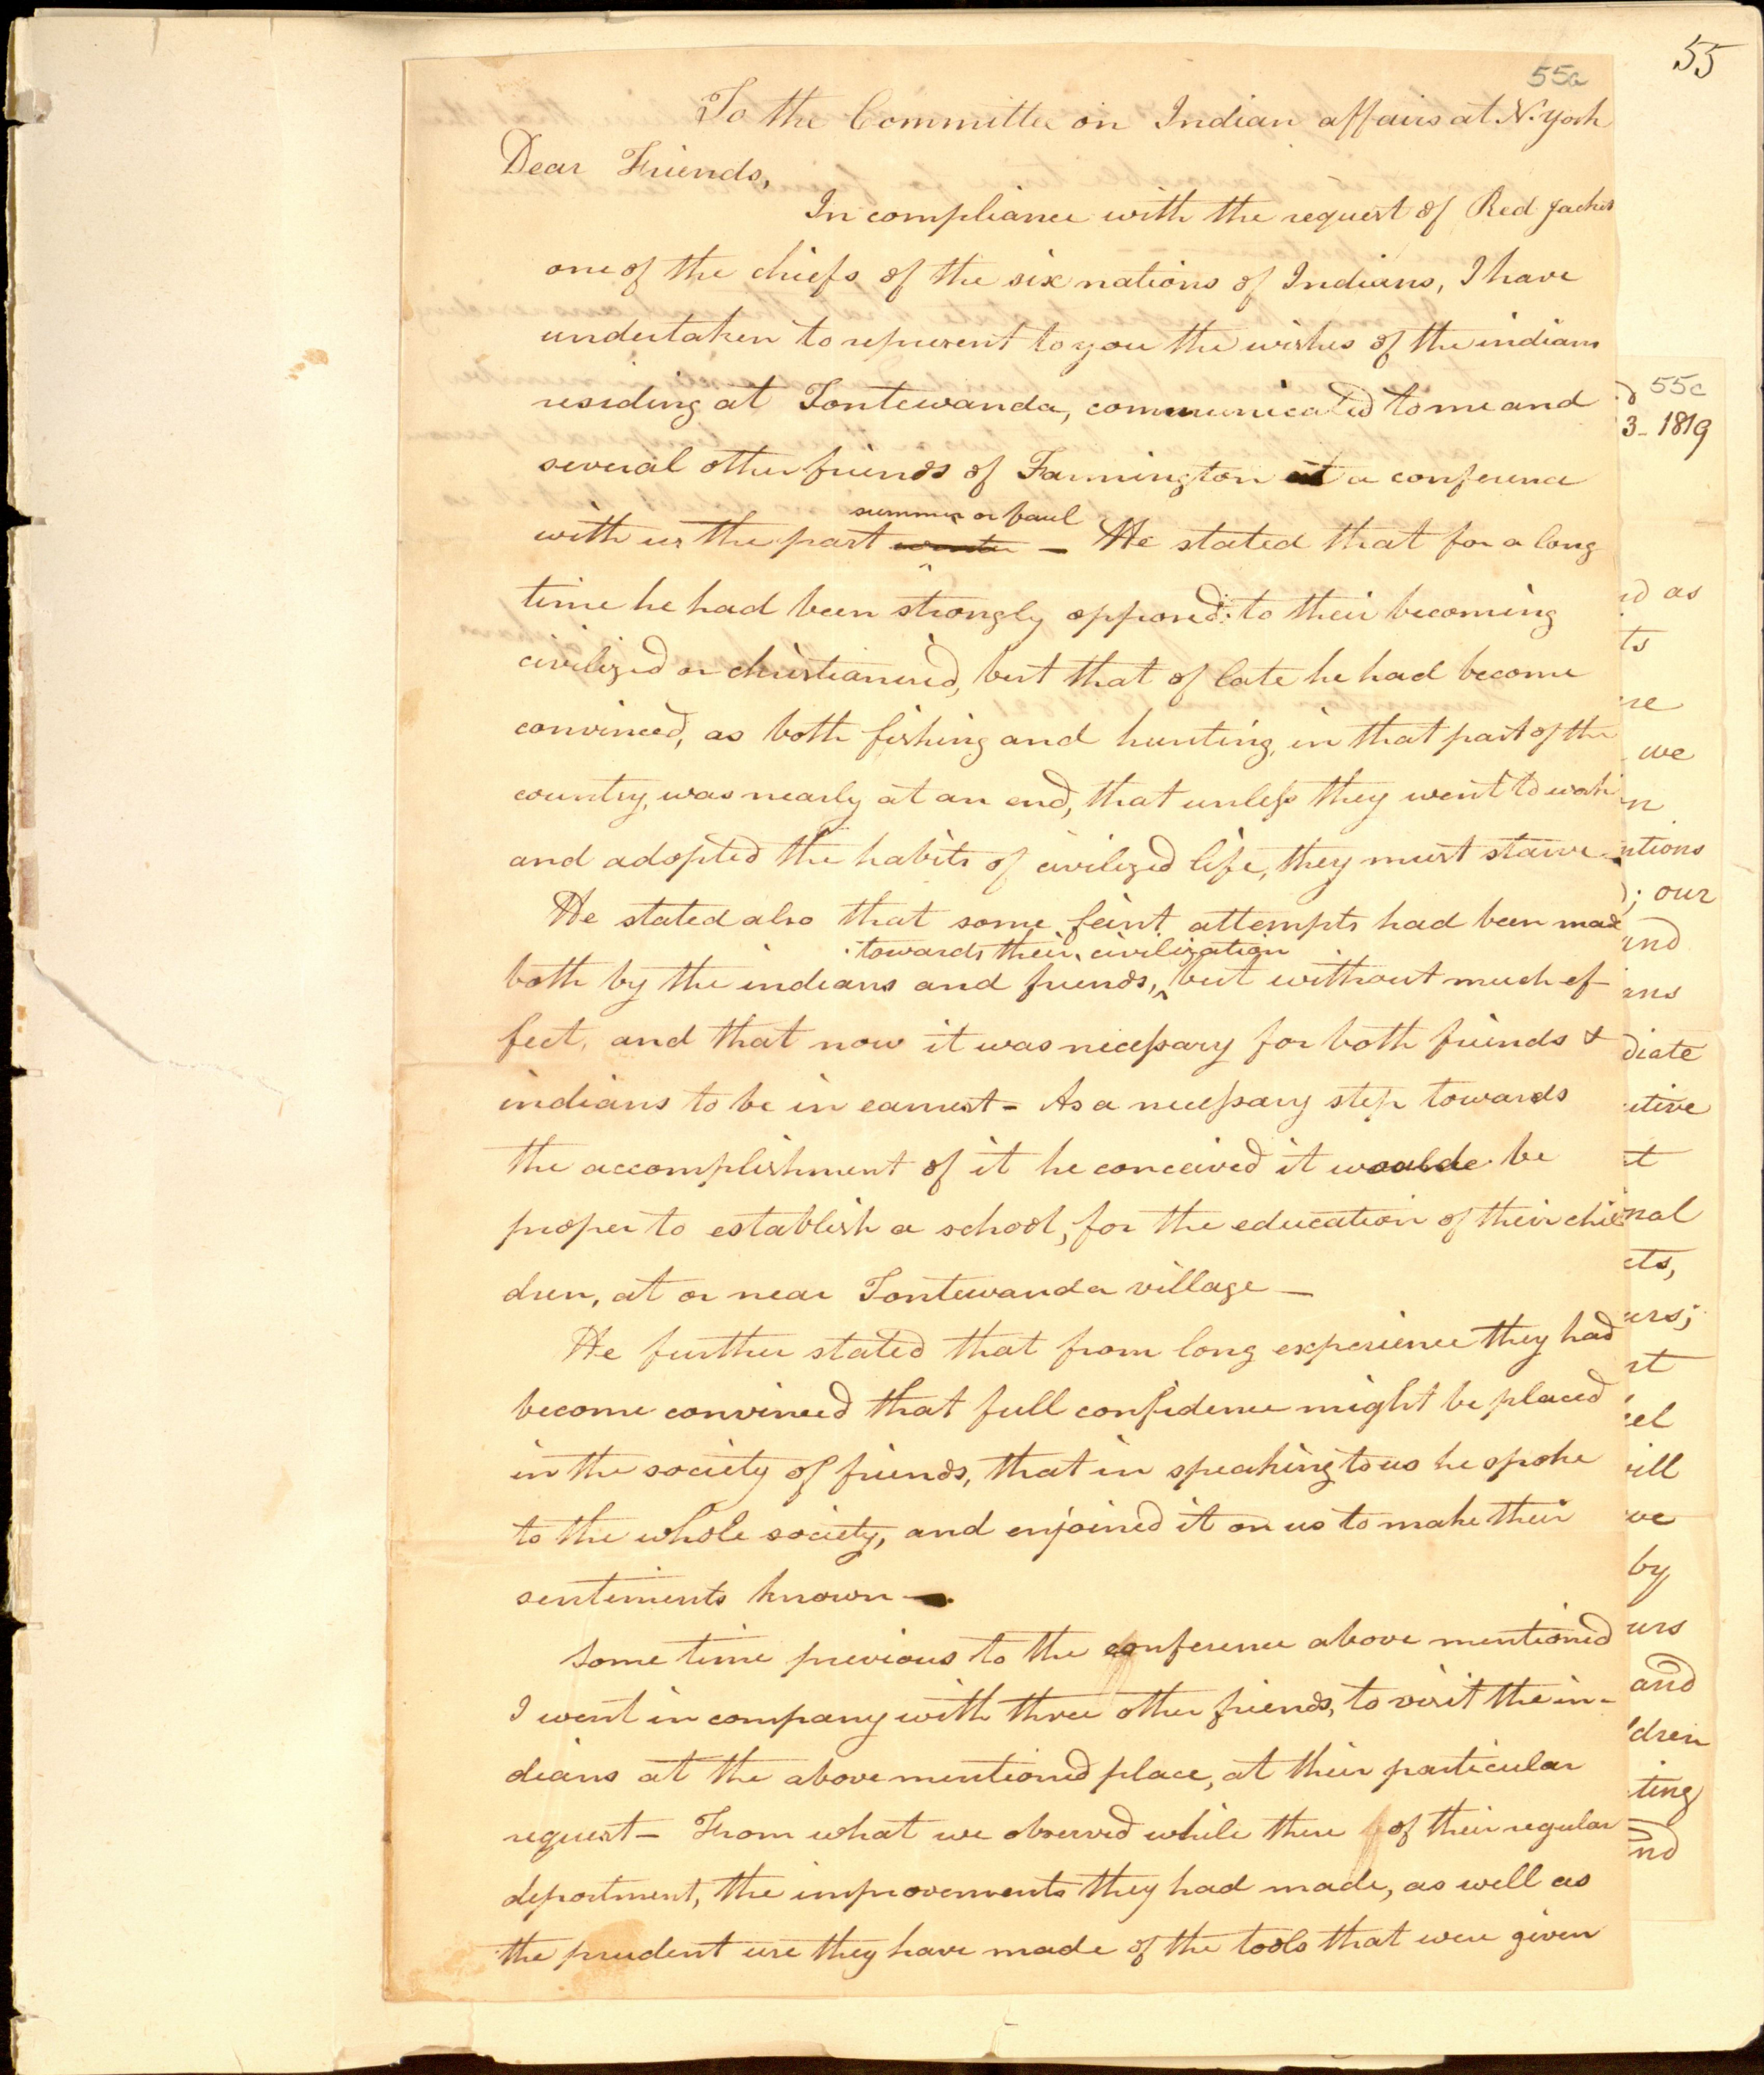 55
55a
To the Committee on Indian affairs at N. York
Dear Friends,
In compliance with the request of Red Jacket
one of the chiefs of the six nations of Indians, I have
undertaken to represent to you the wishes of the indians
residing at Tontewanda, communicated to me and
several other friends of Farmington at a conference
summer or
with us the past winter — He stated that for a long
time he had been strongly opposed to their becoming
civilized or christianised, but that of late he had become
convinced, as both fishing and hunting, in that part of the
country, was nearly at an end, that unless they went to work
and adopted the habits of civilized life, they must starve —
He stated also that some feint attempts had been made
towards their civilization
both by the indians and friends, but without much ef-
fect, and that now it was necessary for both friends &
indians to be in earnest — As a necessary step towards
the accomplishment of it he conceived it would be
proper to establish a school, for the education of their chil
dren, at or near Tontewanda village —
He further stated that from long experience they had
become convinced that full confidence might be placed
in the society of friends, that in speaking to us he spoke
to the whole society, and enjoined it on us to make their
sentiments known —
Some time previous to the conference above mentioned
I went in company with three other friends, to visit the in-
dians at the above mentioned place, at their particular
request — From what we observed while there of their regular
deportment, the improvements they had made, as well as
the prudent use they have made of the tools that were given
55c
3- 1819
as
ts
we
; our
and
ans
diate
utive
nal
cts,
urs;
ill
we
by
urs
and
dren
ting
nd